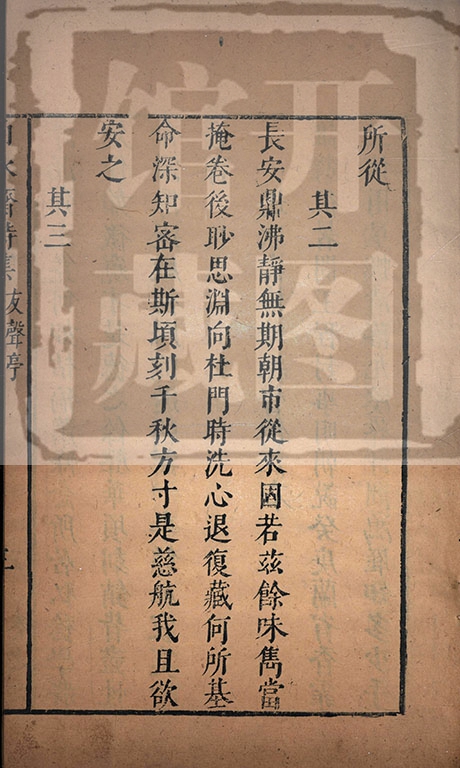 所從
其二
長安鼎沸靜無期朝市從來困若兹餘味雋當
掩卷後眇思淵向杜門時洗心退復藏何所基
命深知密在斯頃刻千秋方寸是慈航我且欲
安之
其三
集 友聲亭
开图
馆藏